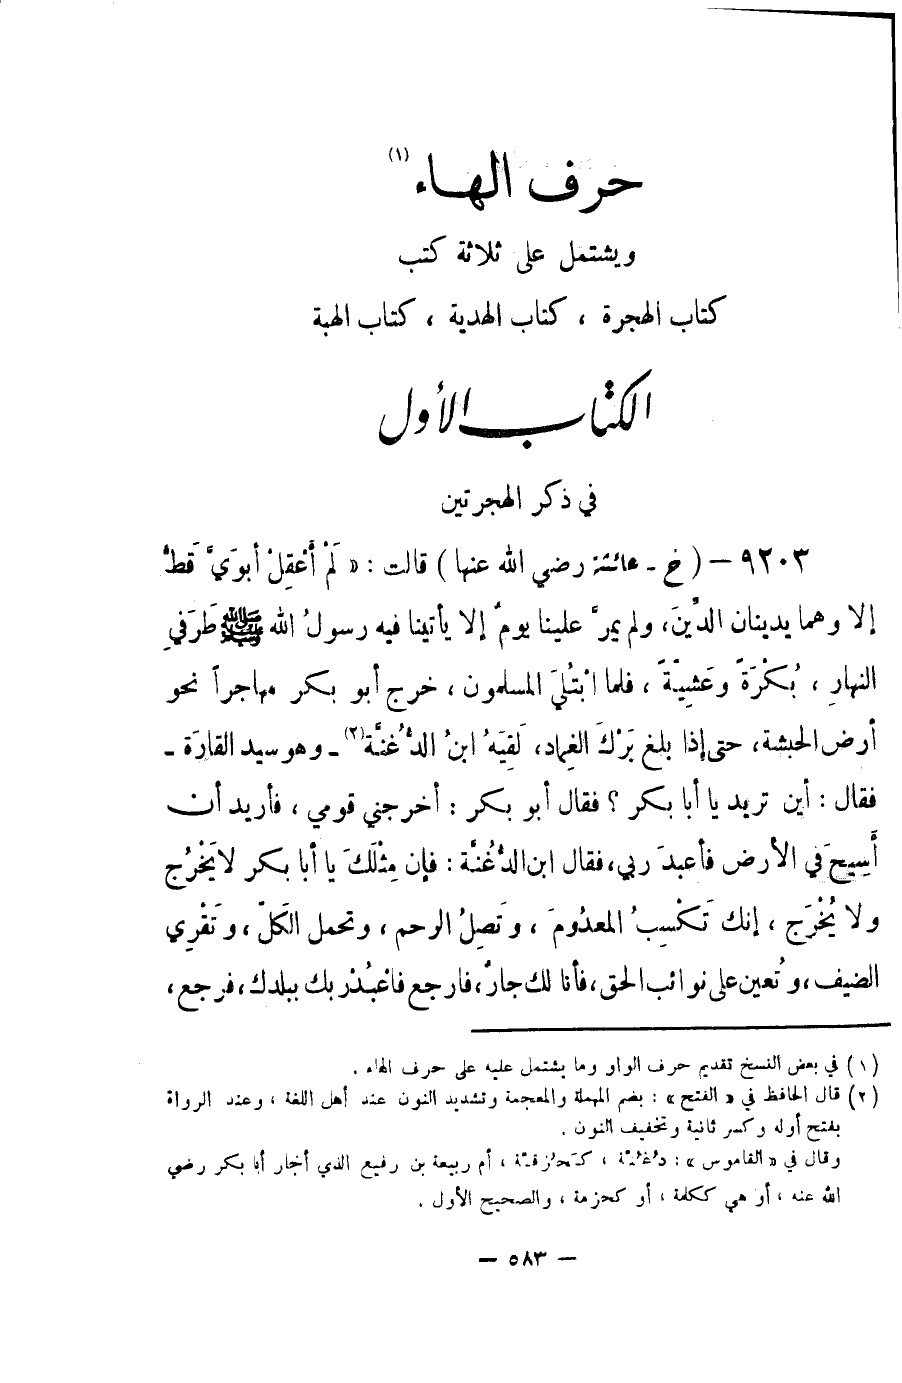 حرف الهاء (١)
ويشتمل على ثلاثة كتب
كتاب الهجرة ، كتاب الهدية ، كتاب الهبة
الكتاب الأول
في ذكر الهجرتين
٩٢٠٣ – ( خ - عائشة رضي الله عنها ) قالت : « لَمْ أَعْقِلْ أبوَيَّ قَطُّ
إلا وهما يدينان الدِّينَ، ولم يمرَّ علينا يومٌ إلا يأتينا فيه رسولُ الله ﷺ طَرَفي
النهارِ ، بُكْرَةً وعَشيِّةً ، فلما ابْتُليَ المسلمون ، خرج أبو بكر مهاجراً نحو
أرض الحبشة، حتى إذا بلغ بَرْكَ الغِماد، لَقِيَهُ ابنُ الدُّغُنَّة (٢) - وهو سيد القارَة -
فقال : أين تريد يا أبا بكر ؟ فقال أبو بكر : أخرجني قومي ، فأريد أن
أَسِيحَ في الأرض فأعبدَ ربي، فقال ابن الدُّغُنَّة : فإن مِثْلَكَ يا أبا بكر لا يَخْرُج
ولا يُخْرَج ، إنك تَكْسِبُ المعدُومَ ، وتَصِلُ الرحم ، وتحمل الكَلَّ ، وتَقْرِي
الضيف، وتُعين على نوائب الحق، فأنا لك جارٌ، فارجع فاعْبُدْ ربك ببلدك، فرجع،
(١) في بعض النسخ تقديم حرف الواو وما يشتمل عليه على حرف الهاء .
(٢) قال الحافظ في « الفتح » : بضم المهملة والمعجمة وتشديد النون عند أهل اللغة ، وعند الرواة
بفتح أوله وكسر ثانية وتخفيف النون .
وقال في « القاموس » : كحُزقة ، أم ربيعة بن رفيع الذي أجار أبا بكر رضي
الله عنه ، أو هي ككلمة ، أو كحزمة ، والصحيح الأول .
– ٥٨٣ –